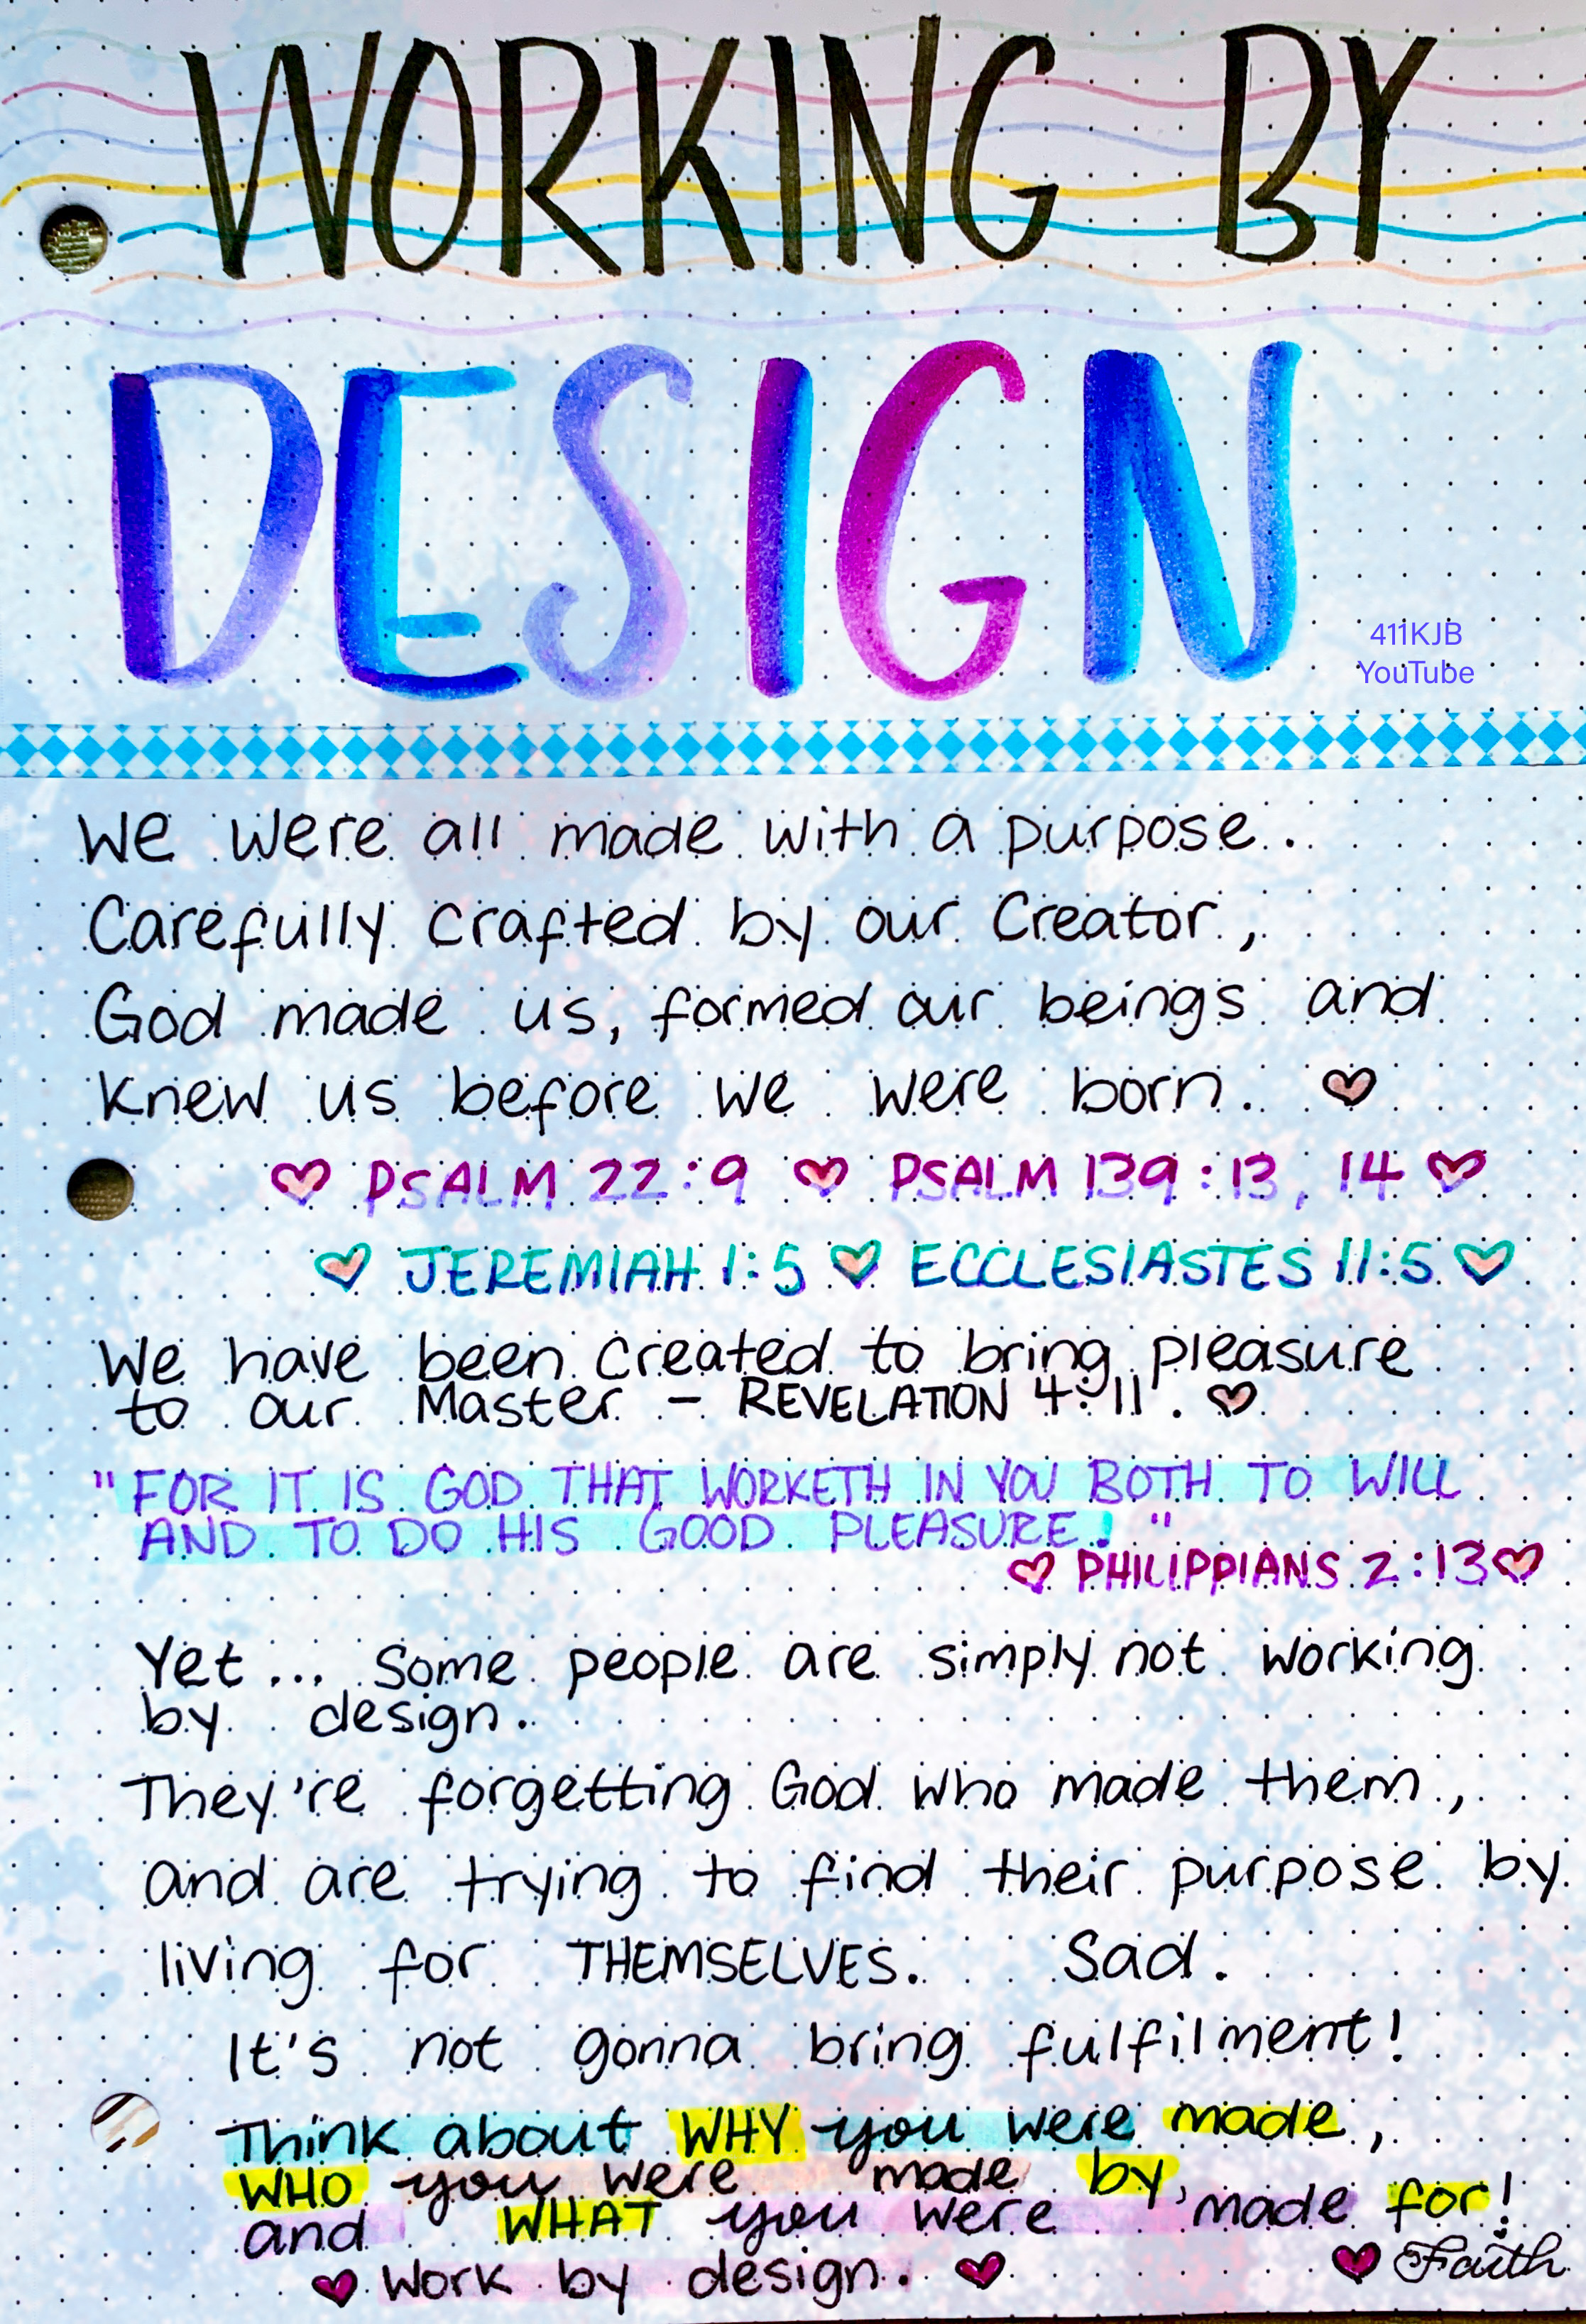 WORKING BY
DESIGN
411KJB
YouTube
We were all made with a purpose..
Carefully crafted by our Creator,
God made us, formed our beings and
knew us before we were born.
PSALM 22:9 PSALM 139:13, 14
JEREMIAH 1:5 ECCLESIASTES 11:5
We have been created to bring pleasure
to our Master - REVELATION 4:11.
"FOR IT IS GOD THAT WORKETH IN YOU BOTH TO WILL
AND TO DO HIS GOOD PLEASURE."
PHILIPPIANS 2:13
Yet... some people are simply not working
by design.
They're forgetting God who made them,
and are trying to find their purpose by
living for THEMSELVES. Sad.
It's not gonna bring fulfilment!
Think about WHY you were made,
WHO you were made by,
and WHAT you were made for!
Work by design.
Faith